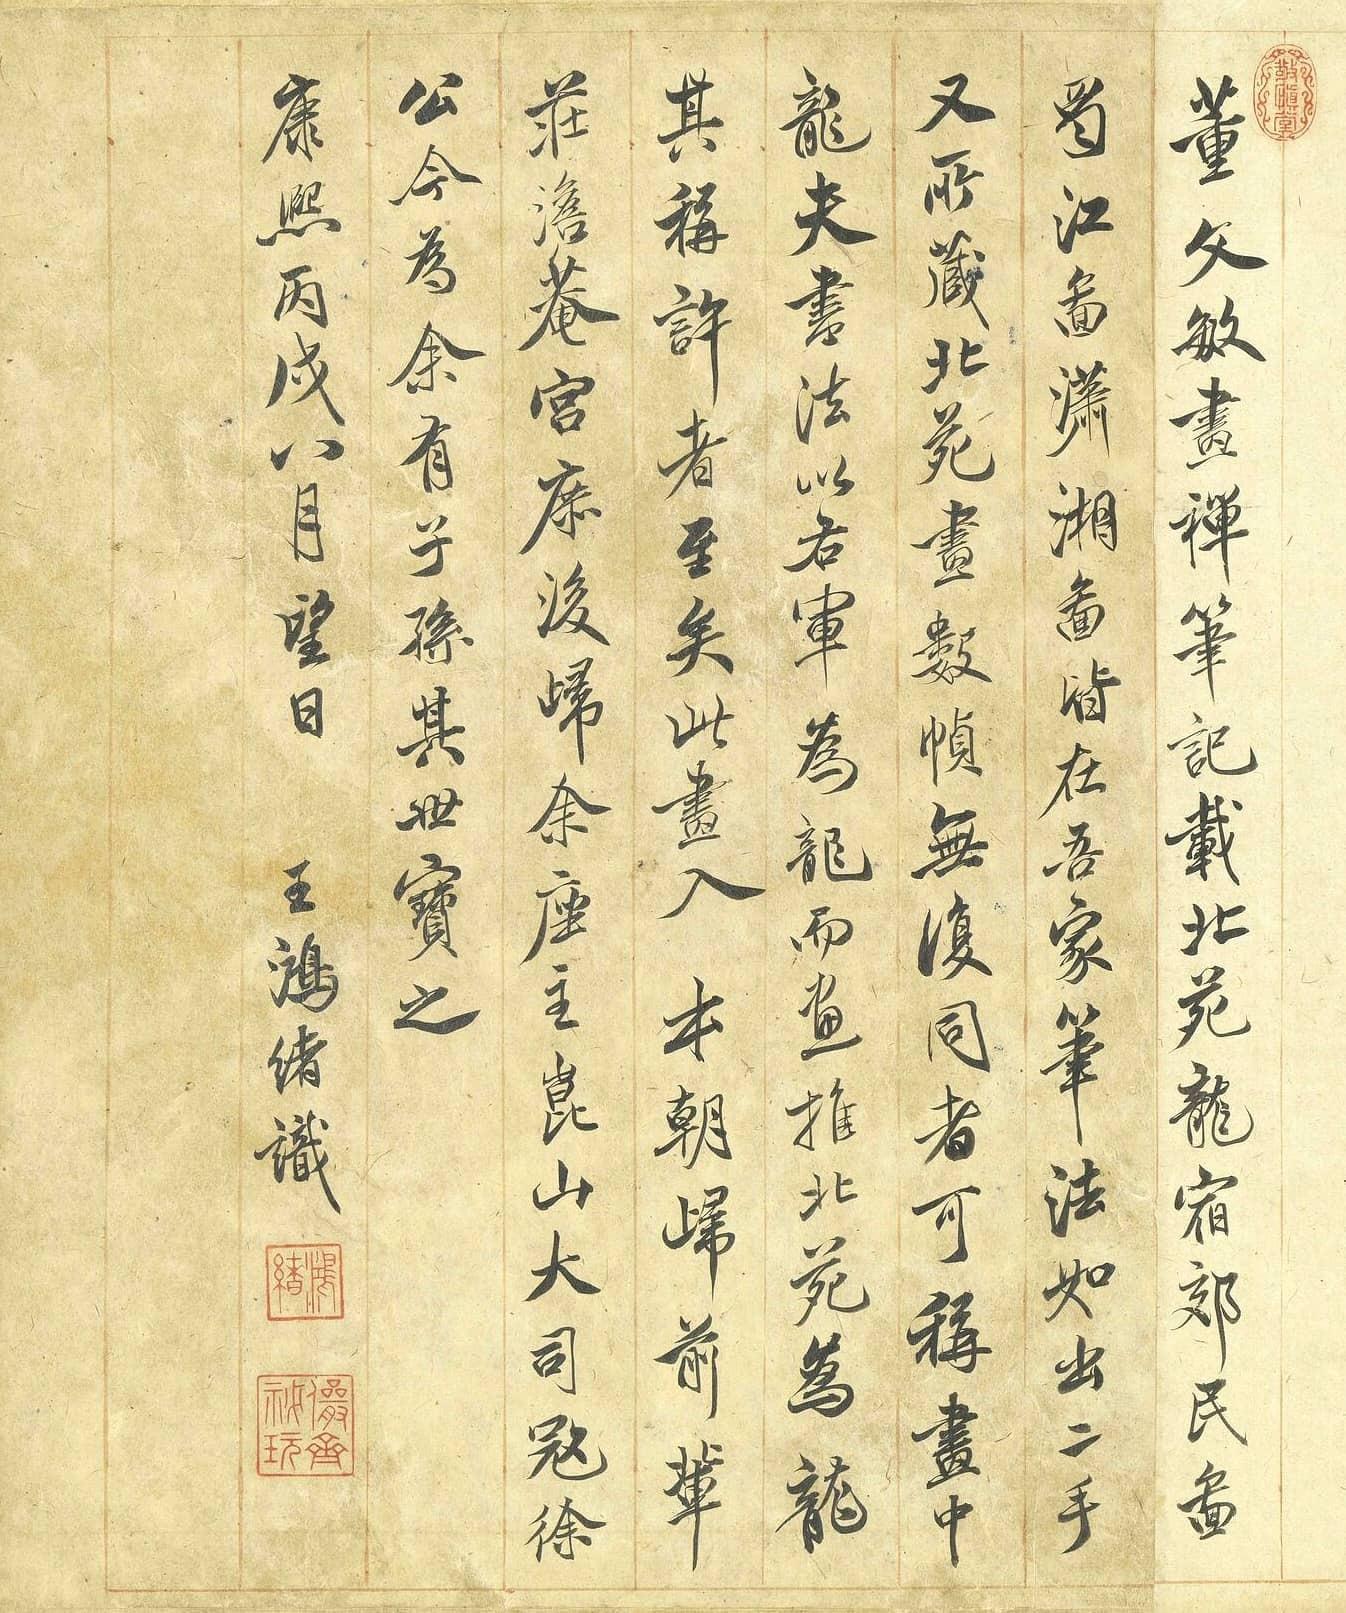 敬慎堂
董文敏畫禪筆記載北苑龍宿郊民圖
蜀江圖瀟湘圖皆在吾家筆法如出二手
又所藏北苑畫數幀無復同者可稱畫中
龍夫書法以右軍為龍而畫推北苑為龍
其稱許者至矣此畫入 本朝歸前輩
莊澹菴宮庶後歸余座主崑山大司寇徐
公今為余有子孫其世寶之
康熙丙戌八月望日 王鴻緒識
鴻緒
儼齋祕玩